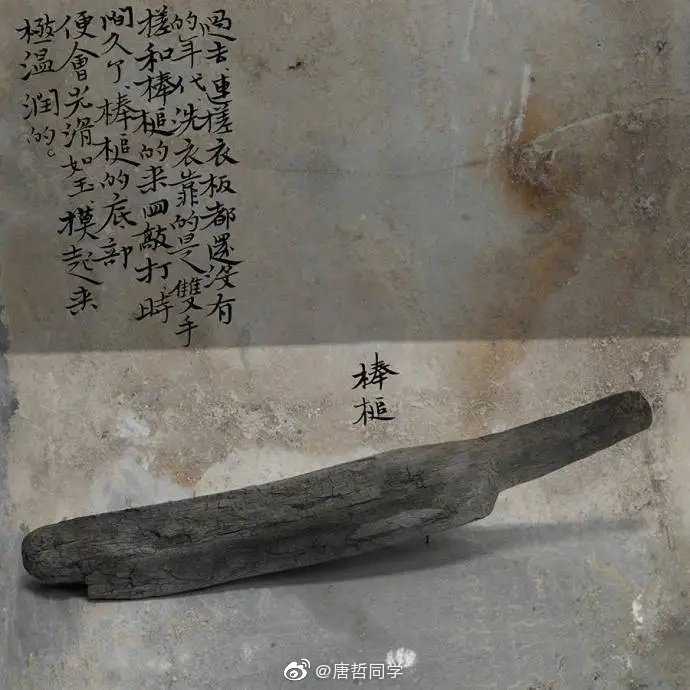 過去、連搓衣板都還没有
的年代、洗衣靠的是雙手
搓和棒槌的来回敲打、時
間久了、棒槌的底部
便會光滑如玉摸起来
極温潤的。
棒槌
@唐哲同学